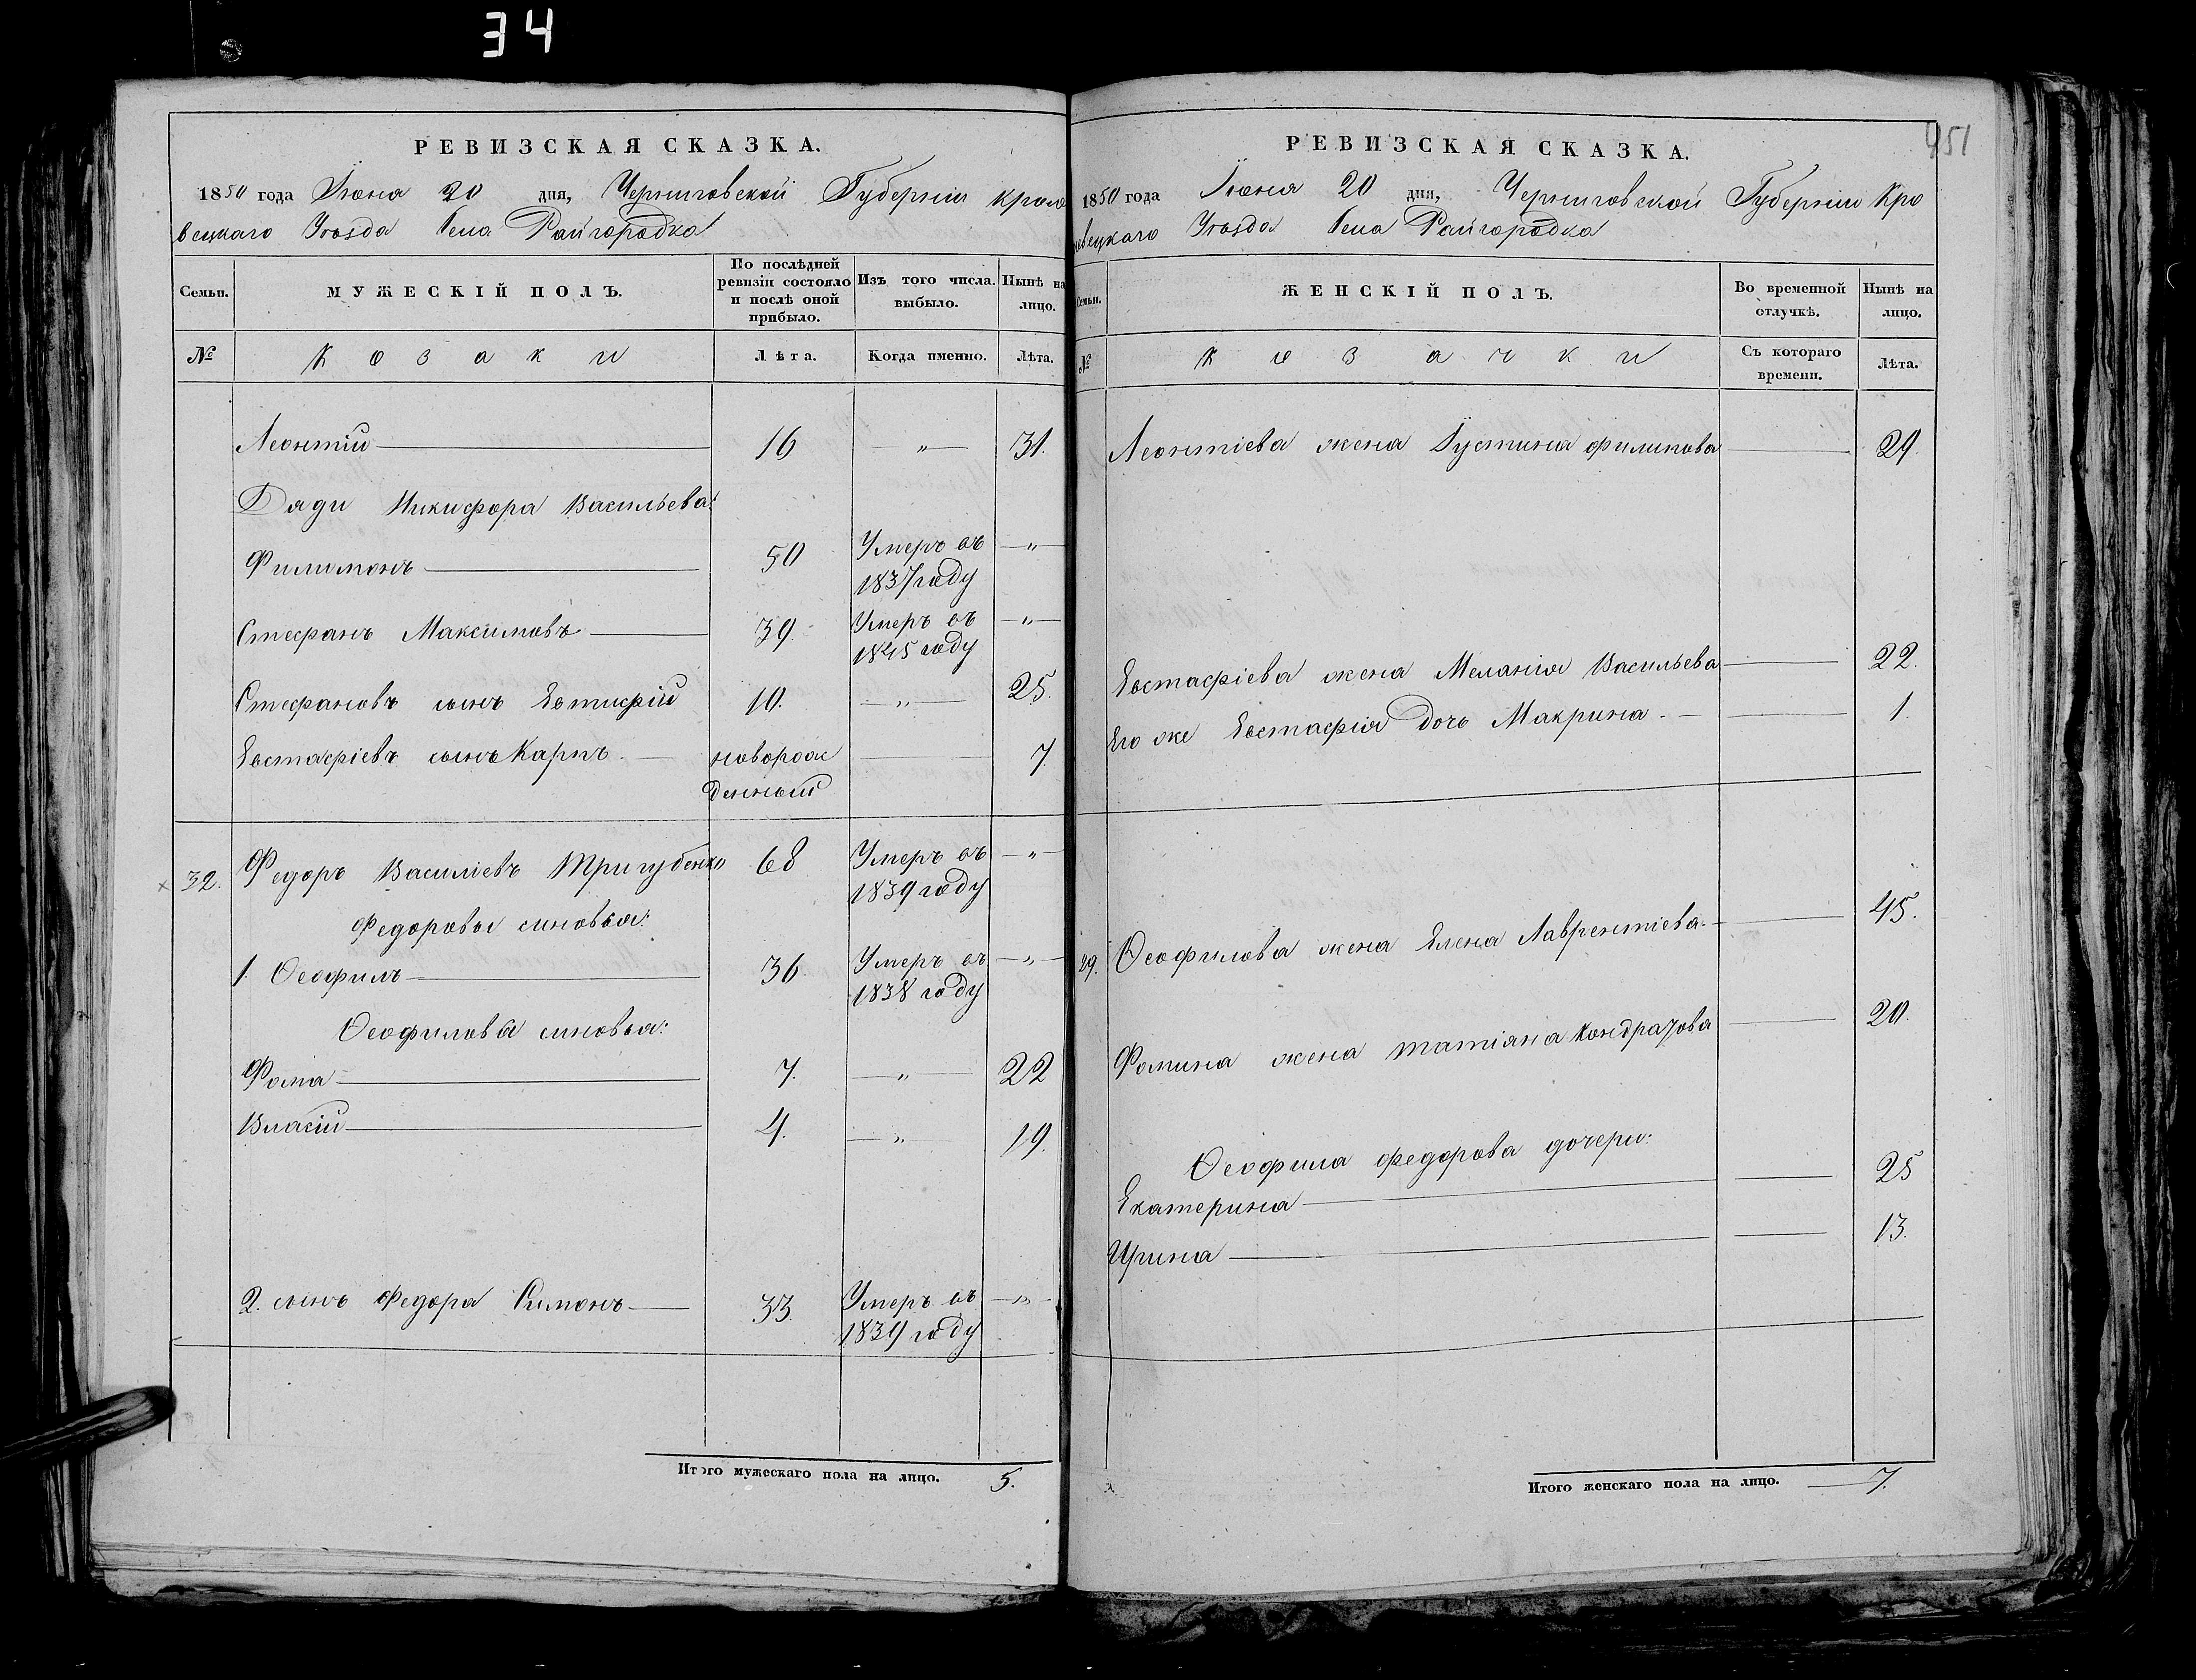 34
РЕВИЗСКАЯ СКАЗКА.
1850 года Іюня 20 дня, Черниговской Губерніи Кроле
вецкаго Уѣзда Села Райгородка
Семьи.
МУЖЕСКІЙ ПОЛЪ.
По послѣдней ревизіи состояло и послѣ оной прибыло.
Изъ того числа выбыло.
Нынѣ на лицо.
№
Козаки
Лѣта.
Когда именно.
Лѣта.
Леонтій 16 — „ — 31.
Дяди Никифора Васильева:
Филимонъ 50 Умеръ въ 1837 году — „ —
Стефанъ Максимовъ 39. Умеръ въ 1845 году — „ —
Стефановъ сынъ Евтифій 10. — „ — 25.
Евстафіевъ сынъ Карпъ. новорож
денный 7.
32. Федоръ Василіевъ Тригубенко 68 Умеръ въ 1839 году — „ —
Федоровы синовья:
1 Ѳеофилъ 36. Умеръ въ 1838 году — „ —
Ѳеофиловы синовья:
Фома 7. — „ — 22
Власій 4. — „ — 19.
2. сынъ Федора Симонъ 33. Умеръ въ 1839 году — „ —
Итого мужескаго пола на лицо. 5.
951
РЕВИЗСКАЯ СКАЗКА.
1850 года Іюня 20 дня, Черниговской Губерніи Кро
левецкаго Уѣзда Села Райгородка
Семьи.
ЖЕНСКІЙ ПОЛЪ.
Во временной отлучкѣ.
Нынѣ на лицо.
№
Козачки
Съ котораго времени.
Лѣта.
Леонтіева жена Іустина филипова 29.
Евстафіева жена Меланія Васильева 22.
Его же Евстафія дочь Макрина. 1.
29. Ѳеофилова жена Елена Лаврентіева. 45.
Фомина жена татіяна Кондратова 20.
Ѳеофила федорова дочери:
Екатерина 25
Ирина 13.
Итого женскаго пола на лицо. 7.